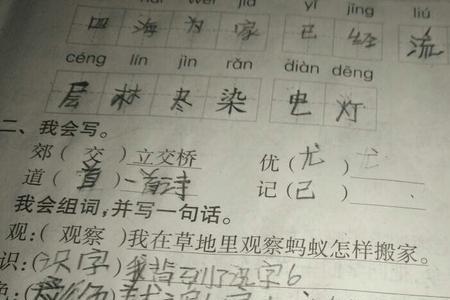 hǎi wéi jiā yǐ jīng liú
四 海 为 家 已 经 流
céng lín jìn rǎn diàn dēng
层 林 尽 染 电 灯
二、我会写。
郊( 交 )立交桥 优(尤 )尤
道( 首 )一首诗 记(己 )
我会组词,并写一句话。
观:( 观察 )我在草地里观察蚂蚁怎样搬家。
识:(识字)我背到了识字6